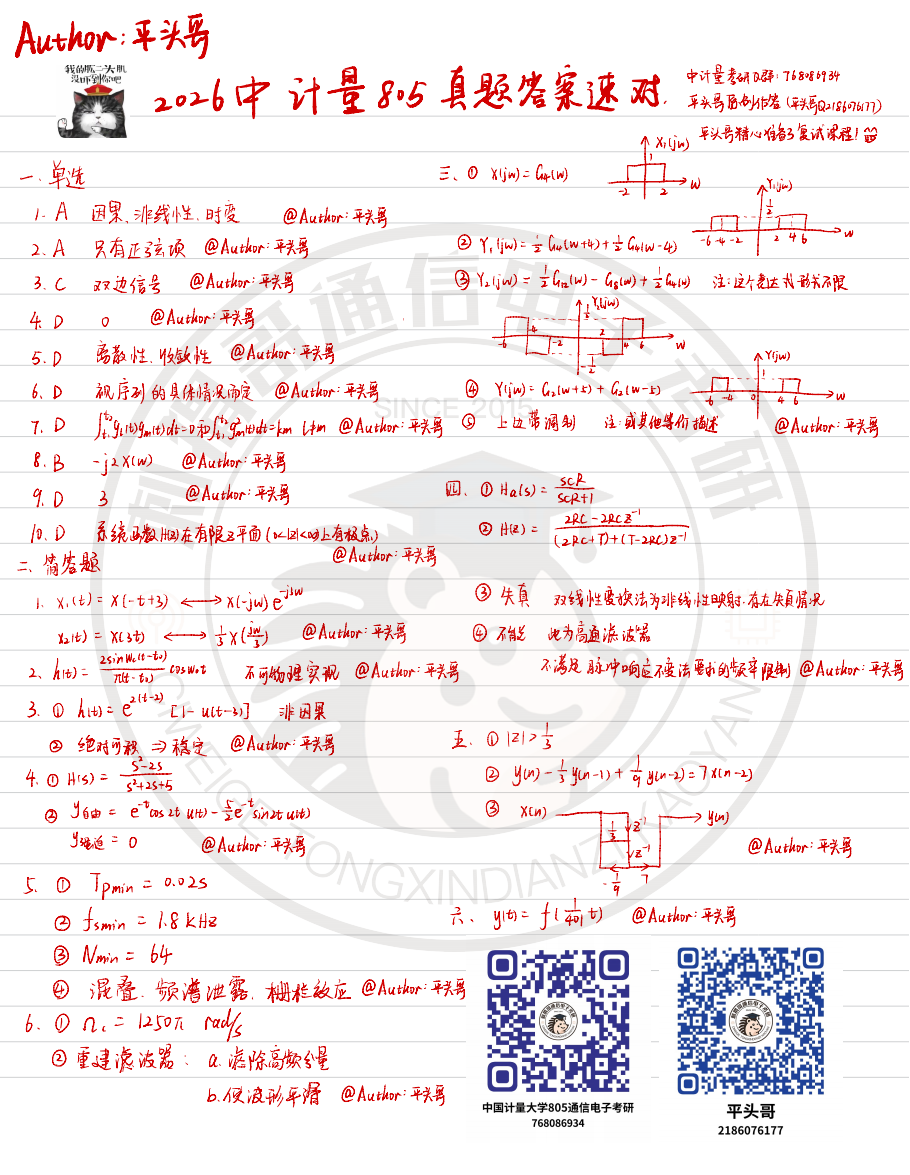 Author:平头哥
我的肱二头肌
没吓到你吧
2026中 计量805真题答案速对.
中计量考研Q群:768086934
平头哥原创作答(平头哥Q2186076177)
平头哥精心准备了复试课程!
一、单选
1. A 因果、非线性、时变 @Author:平头哥
2. A 只有正弦项 @Author:平头哥
3. C 双边信号 @Author:平头哥
4. D 0 @Author:平头哥
5. D 离散性、收敛性 @Author:平头哥
6. D 视序列的具体情况而定 @Author:平头哥
7. D ∫_{t1}^{t2} g_l(t)g_m(t)dt=0和∫_{t1}^{t2} g_m²(t)dt=km l≠m @Author:平头哥
8. B -j2X(w) @Author:平头哥
9. D 3 @Author:平头哥
10. D 系统函数H(z)在有限z平面(0<|z|<∞)上有极点)
@Author:平头哥
二、简答题
1. x₁(t) = x(-t+3) ⟷ X(-jw) e^{-j3w}
x₂(t) = x(3t) ⟷ 1/3 X(jw/3) @Author:平头哥
2. h(t) = 2sinWc(t-t₀)/π(t-t₀) cosw₀t 不可物理实现 @Author:平头哥
3. ① h(t) = e^{2(t-2)} [1-u(t-3)] 非因果
② 绝对可积 ⇒ 稳定 @Author:平头哥
4. ① H(s) = (s²-2s)/(s²+2s+5)
② y自由 = e^{-t}cos2t u(t) - 5/2 e^{-t} sin2t u(t)
y强迫 = 0 @Author:平头哥
5. ① Tpmin = 0.02s
② fsmin = 1.8kHz
③ Nmin = 64
④ 混叠、频谱泄露、栅栏效应 @Author:平头哥
6. ① Ωc = 1250π rad/s
② 重建滤波器: a.滤除高频分量
b.使波形平滑 @Author:平头哥
三、① X(jw) = G₄(w)
X₁(jw)
1
-2 2 w
Y₁(jw)
1/2
-6 -4 -2 2 4 6 w
② Y₁(jw) = 1/2 G₄(w+4) + 1/2 G₄(w-4)
③ Y₂(jw) = 1/2 G₁₂(w) - G₈(w) + 1/2 G₄(w) 注:这个表达式形式不限
Y₂(jw)
1/2
-6 -4 -2 2 4 6 w
-1/2
Y(jw)
1
-6 -4 0 4 6 w
④ Y(jw) = G₂(w+5) + G₂(w-5)
⑤ 上边带调制 注:或其他等价描述 @Author:平头哥
四、① Ha(s) = SCR/(SCR+1)
② H(z) = (2RC-2RCz⁻¹)/((2RC+T)+(T-2RC)z⁻¹)
③ 失真 双线性变换法为非线性映射.存在失真情况
④ 不能 此为高通滤波器
不满足脉冲响应不变法要求的频率限制 @Author:平头哥
五、① |z|>1/3
② y(n) - 1/3 y(n-1) + 1/9 y(n-2) = 7x(n-2)
③ x(n) y(n)
1/3 z⁻¹
z⁻¹
-1/9 7
@Author:平头哥
六、y(t) = f(1/401 t) @Author:平头哥
SINCE 2018
中国计量大学805通信电子考研
768086934
平头哥
2186076177